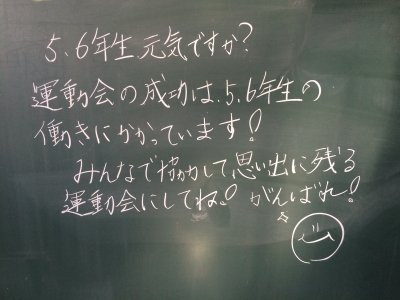 5、6年生、元気ですか?
運動会の成功は、5、6年生の
働きにかかっています!
みんなで協力して思い出に残る
運動会にしてね!がんばれ!